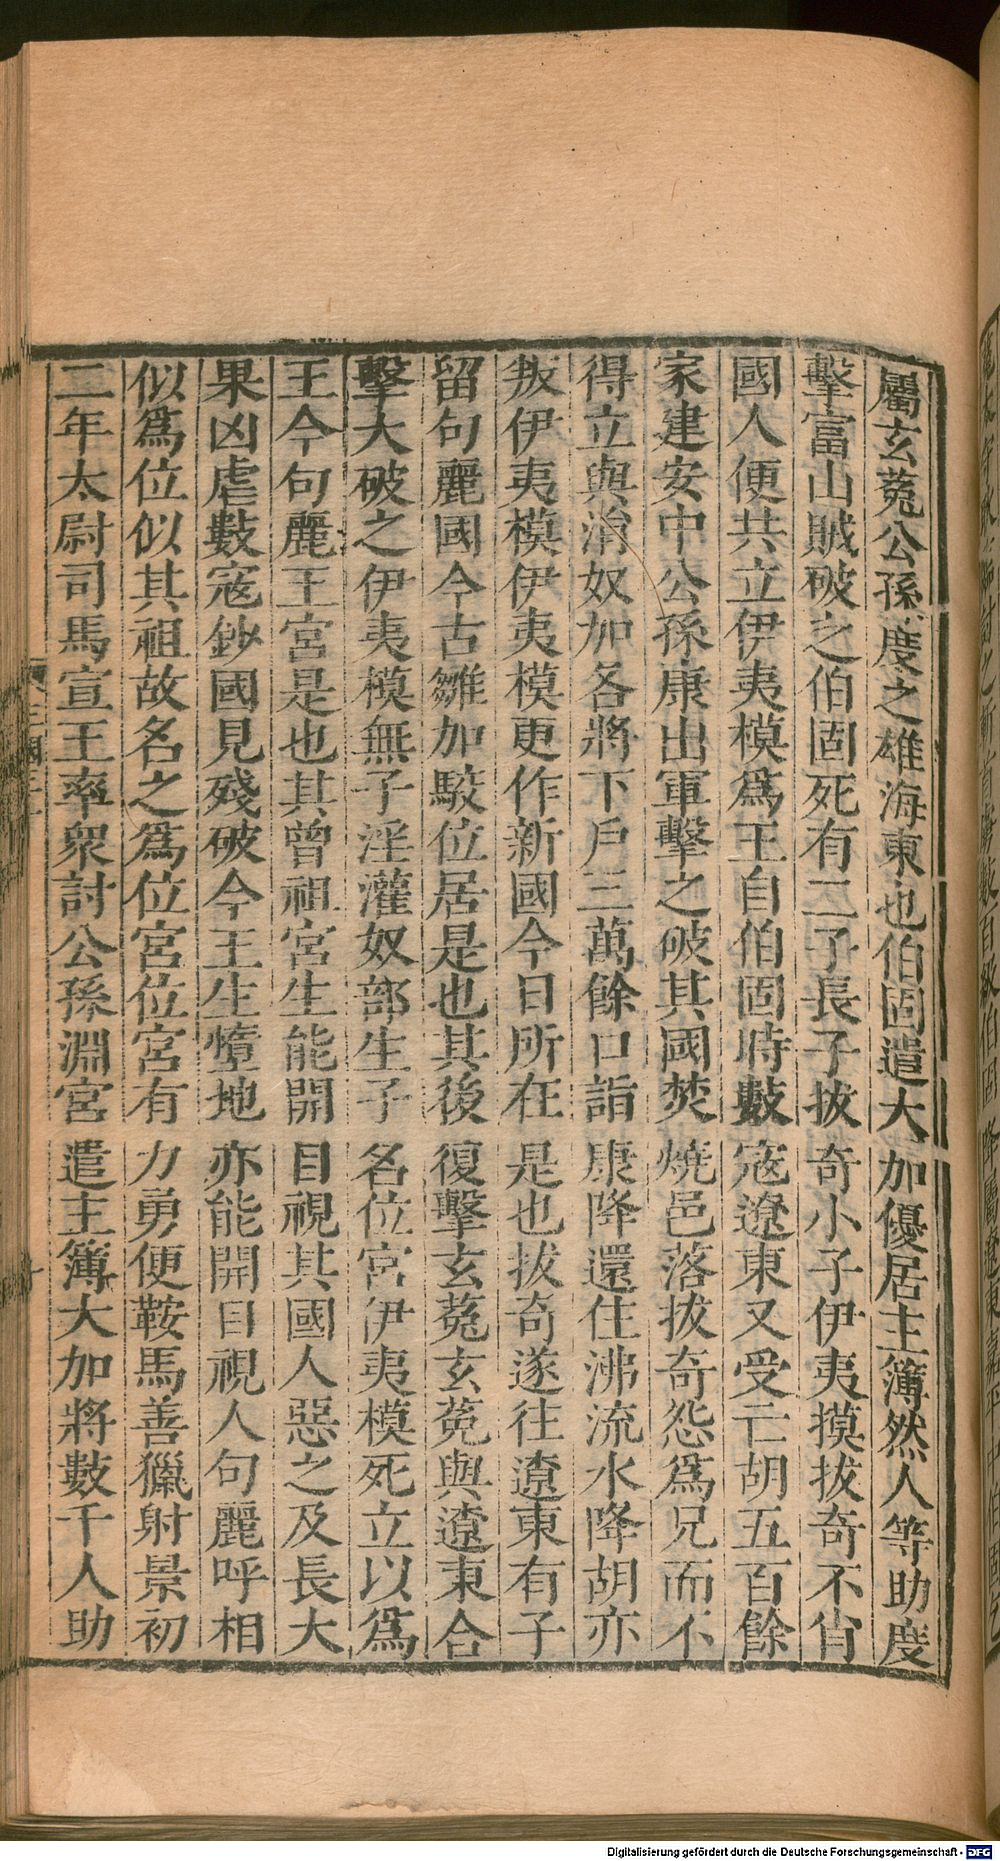 屬玄菟公孫度之雄海東也伯固遣大加優居主簿然人等助度
擊富山賊破之伯固死有二子長子拔奇小子伊夷摸拔奇不肖
國人便共立伊夷模爲王自伯固時數寇遼東又受亡胡五百餘
家建安中公孫康出軍擊之破其國焚燒邑落拔奇怨爲兄而不
得立與涓奴加各將下戶三萬餘口詣康降還住沸流水降胡亦
叛伊夷模伊夷模更作新國今日所在是也拔奇遂往遼東有子
留句麗國今古雛加駮位居是也其後復擊玄菟玄菟與遼東合
擊大破之伊夷模無子淫灌奴部生子名位宮伊夷模死立以爲
王今句麗王宮是也其曾祖宮生能開目視其國人惡之及長大
果凶虐數寇鈔國見殘破今王生墮地亦能開目視人句麗呼相
似爲位似其祖故名之爲位宮位宮有力勇便鞍馬善獵射景初
二年太尉司馬宣王率衆討公孫淵宮遣主簿大加將數千人助
Digitalisierung gefördert durch die Deutsche Forschungsgemeinschaft - DFG